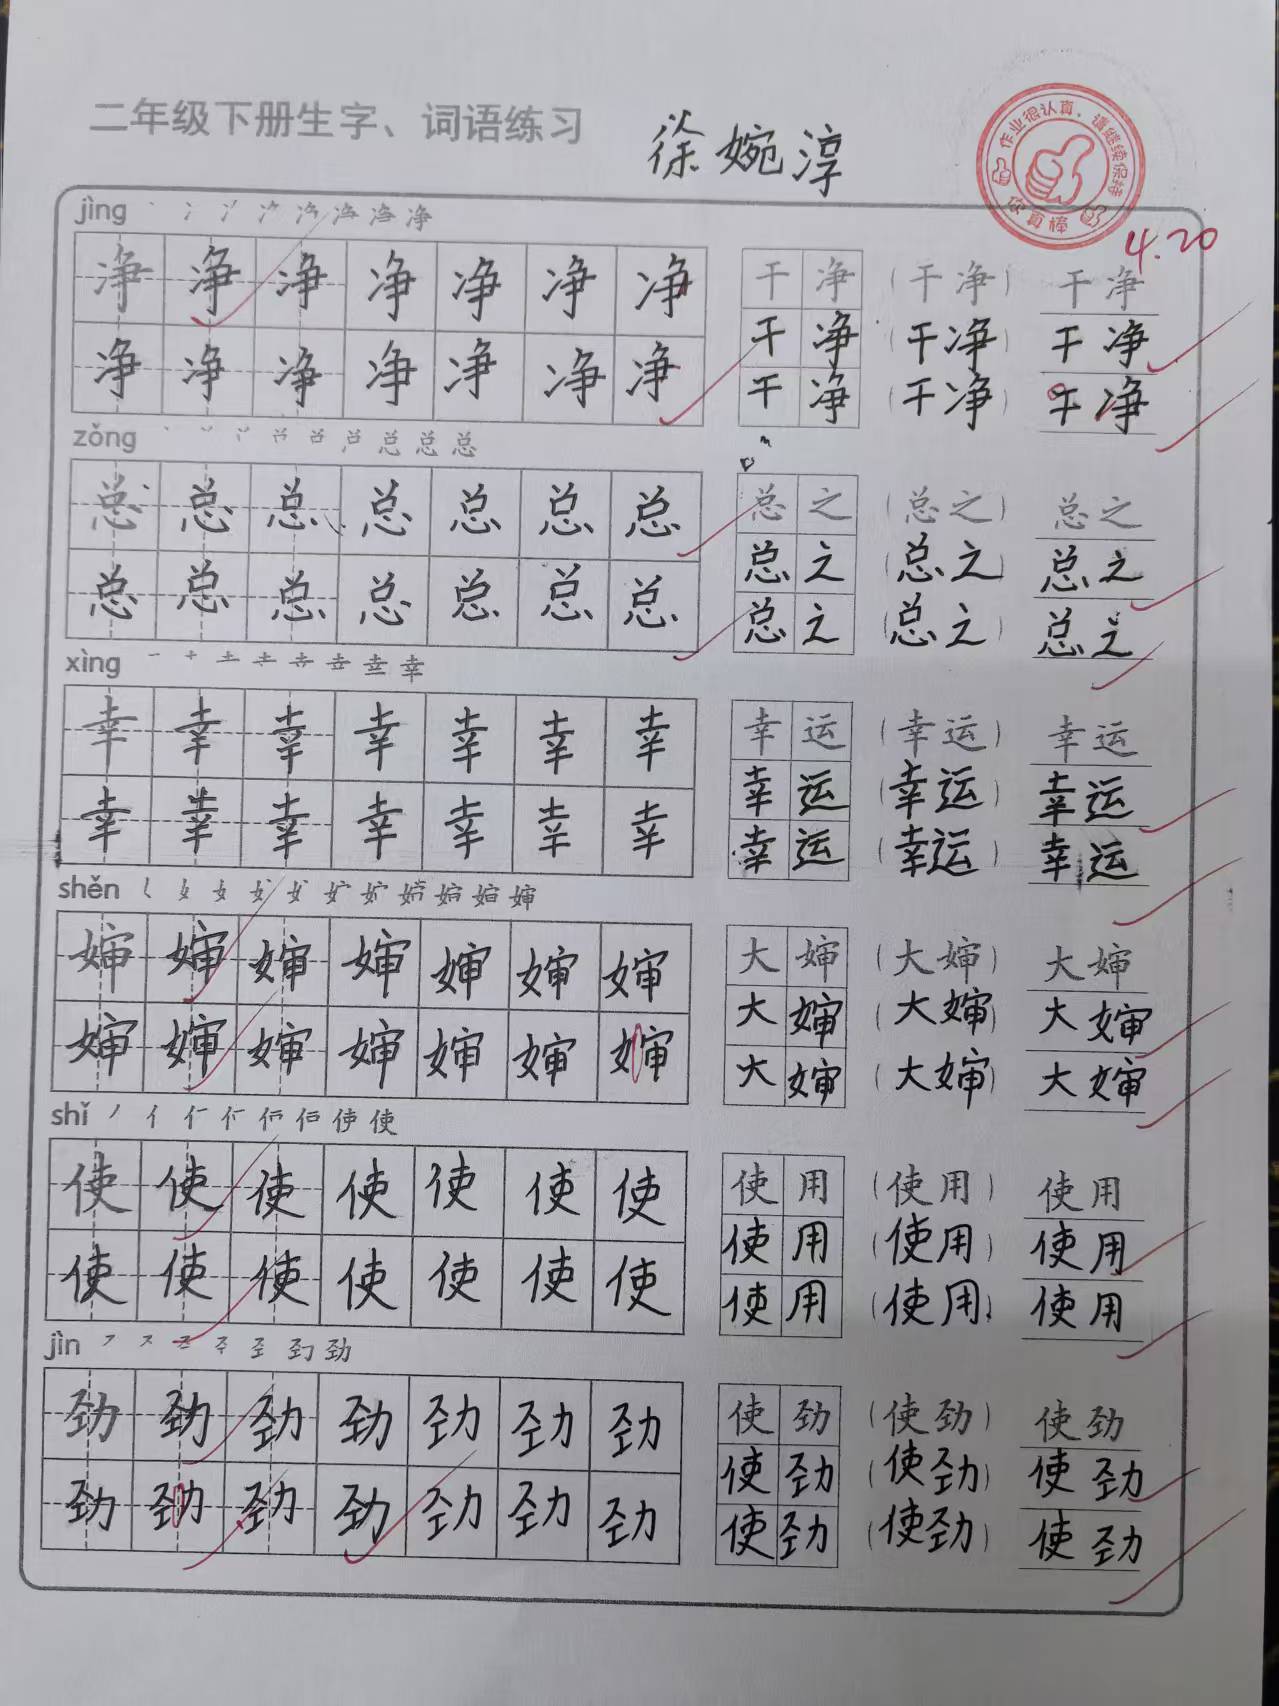 二年级下册生字、词语练习 徐婉淳
作业很认真，请继续保持
你真棒
4.20
jìng 净
净 净 净 净 净 净 净 干 净 (干 净) 干 净
干 净 (干 净) 干 净
净 净 净 净 净 净 净 干 净 (干 净) 干 净
zǒng 总
总 总 总 总 总 总 总 总 之 (总 之) 总 之
总 之 (总 之) 总 之
总 总 总 总 总 总 总 总 之 (总 之) 总 之
xìng 幸
幸 幸 幸 幸 幸 幸 幸 幸 运 (幸 运) 幸 运
幸 运 (幸 运) 幸 运
幸 幸 幸 幸 幸 幸 幸 幸 运 (幸 运) 幸 运
shěn 婶
婶 婶 婶 婶 婶 婶 婶 大 婶 (大 婶) 大 婶
大 婶 (大 婶) 大 婶
婶 婶 婶 婶 婶 婶 婶 大 婶 (大 婶) 大 婶
shǐ 使
使 使 使 使 使 使 使 使 用 (使 用) 使 用
使 用 (使 用) 使 用
使 使 使 使 使 使 使 使 用 (使 用) 使 用
jìn 劲
劲 劲 劲 劲 劲 劲 劲 使 劲 (使 劲) 使 劲
使 劲 (使 劲) 使 劲
劲 劲 劲 劲 劲 劲 劲 使 劲 (使 劲) 使 劲